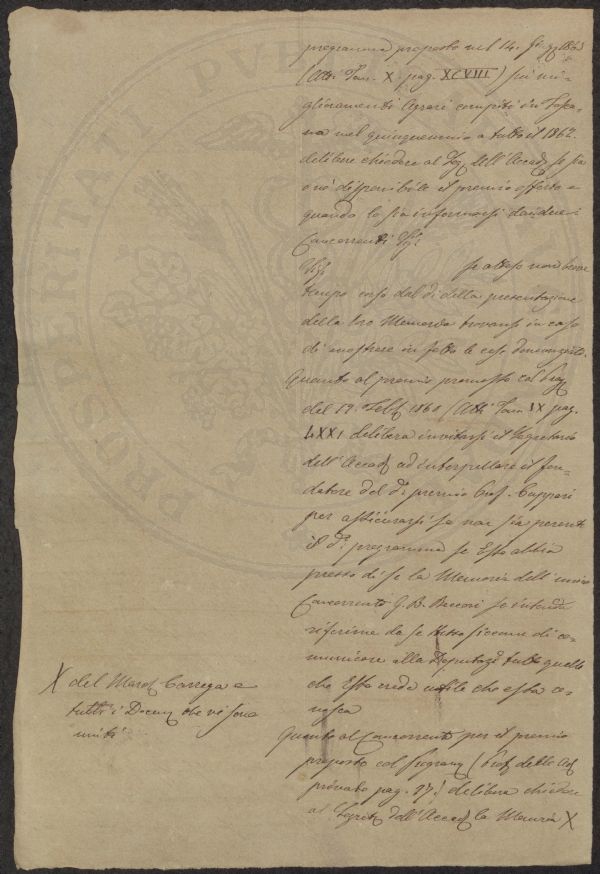 programma proposto nel 14. 1863
(Atti. Tom. X. pag. XCVIII) sui mi-
glioramenti Agrari compiti in Tosca
na nel quinquennio a tutto il 1862.
delibera chiedere al dell'Accad se sia
o nò disponibile il premio offerto e
quando lo sia informarsi dai due
Concorrenti
se atteso non breve
tempo corso dal dì della presentazione
della loro Memoria trovansi in caso
di mostrare in fatto le cose
Quanto al premio promosso col
del 12. 1860 (Atti Tom IX pag.
LXXI delibera invitarsi il Segretario
dell'Accad ad interpellare il fon-
datore del premio Prof. Cuppari
per assicurarsi se non sia perente
il programma se Esso abbia
presso di se la Memoria dell'unico
Concorrente G. B. se intenda
riferirne da se stesso siccome di co-
municare alla Deputaz tutto quello
che Esso creda utile che essa co-
nosca
Quanto al Concorrente per il premio
proposto col
privato pag. 17) delibera chiedere
al dell'Accad la Memoria X
X del March Carrega e
tutti i Docum che vi sono
uniti
PROSPERITATI PVB